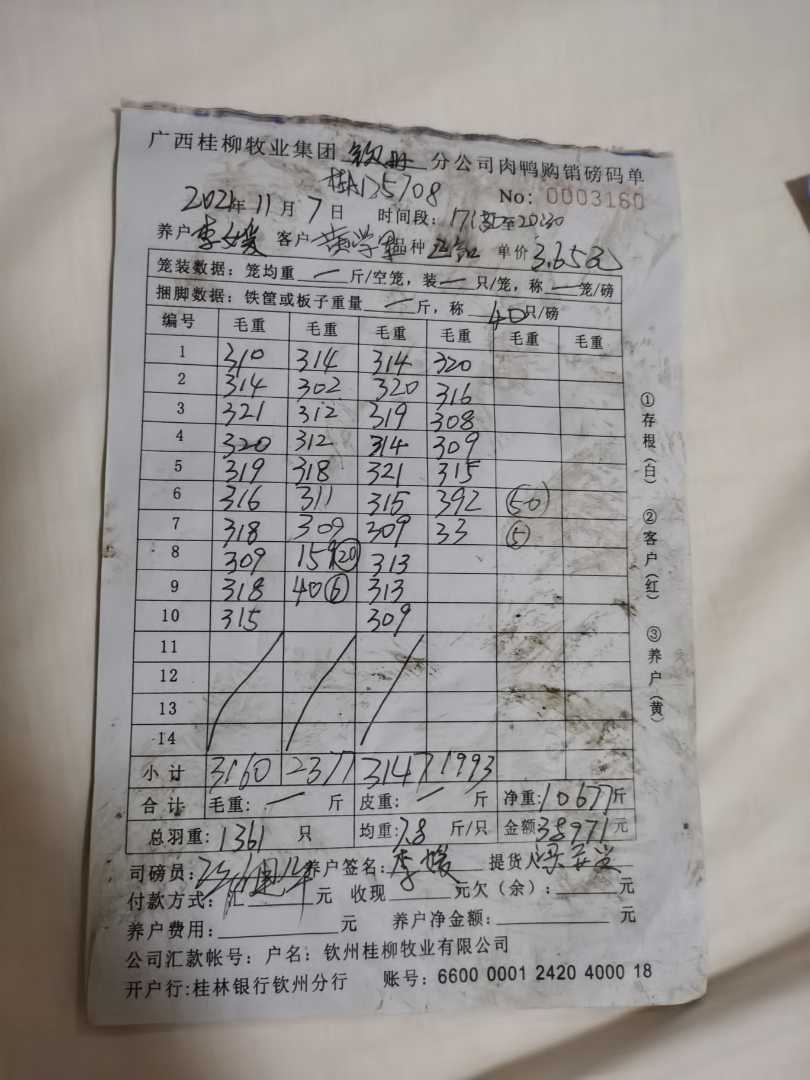 广西桂柳牧业集团 钦州 分公司肉鸭购销磅码单
桂A135708
No: 0003160
2021年 11月 7日 时间段: 至20:30
养户 李媛 客户 黄学 品种 单价 3.65元
笼装数据: 笼均重 一 斤/空笼, 装 一 只/笼, 称 一 笼/磅
捆脚数据: 铁筐或板子重量 一 斤, 称 40 只/磅
编号 毛重 毛重 毛重 毛重 毛重 毛重
1 310 314 314 320
2 314 302 320 316
3 321 312 319 308
4 320 312 314 309
5 319 318 321 315
6 316 311 315 392 (50)
7 318 309 309 33 (5)
8 309 159 (20) 313
9 318 40 (6) 313
10 315 309
11
12
13
14
小计 3160 2377 3147 1993
合计 毛重: 一 斤 皮重: 一 斤 净重: 10677斤
总羽重: 1361 只 均重: 7.8 斤/只 金额 38971元
司磅员: 养户签名: 李媛 提货人
付款方式: 汇 元 收现 元欠(余): 元
养户费用: 元 养户净金额: 元
公司汇款帐号: 户名: 钦州桂柳牧业有限公司
开户行:桂林银行钦州分行 账号: 6600 0001 2420 4000 18
①存根(白) ②客户(红) ③养户(黄)